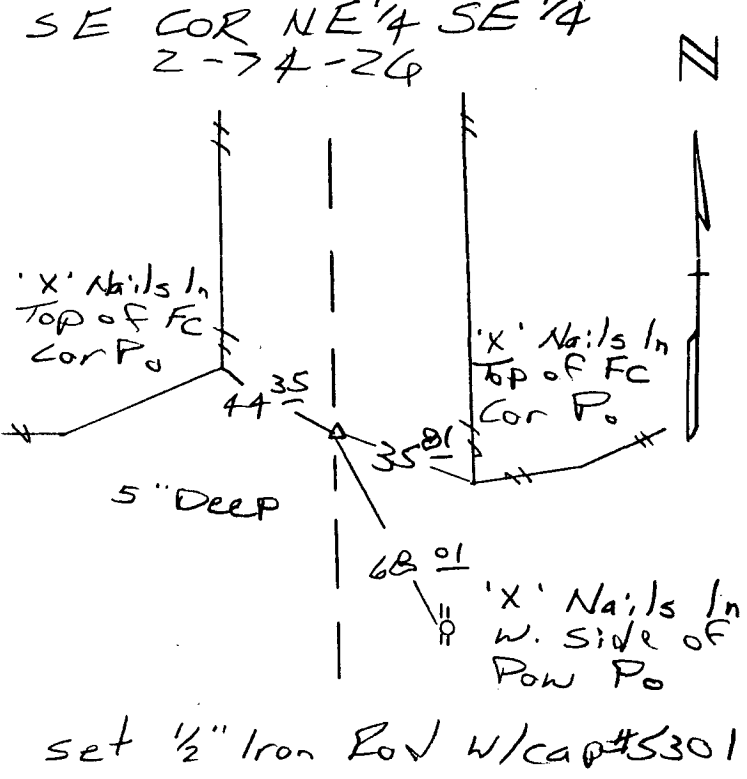 SE COR NE 1/4 SE 1/4
2-74-26
N
'X' Nails In
Top of FC
Cor Po
'X' Nails In
Top of FC
Cor Po
44 35
35 81
5" Deep
68 01
'X' Nails In
W. Side of
Pow Po
set 1/2" Iron Rod W/cap #5301